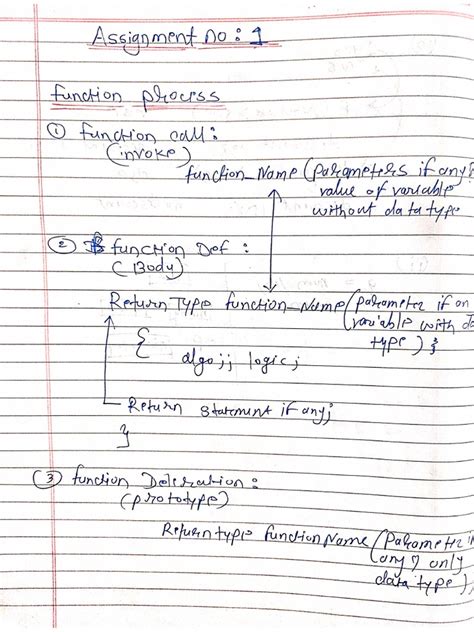 Assignment no : 1
function process
① function call :
(invoke)
function_Name (parameters if any
value of variable
without data type
② function Def :
(Body)
Return Type function_Name (parameter if an
variable with da
type) ;
{
algo ;; logic ;
Return statement if any ;
}
(3) function Decleration :
(prototype)
Return type function Name (Parameter i
any only
data type) ;